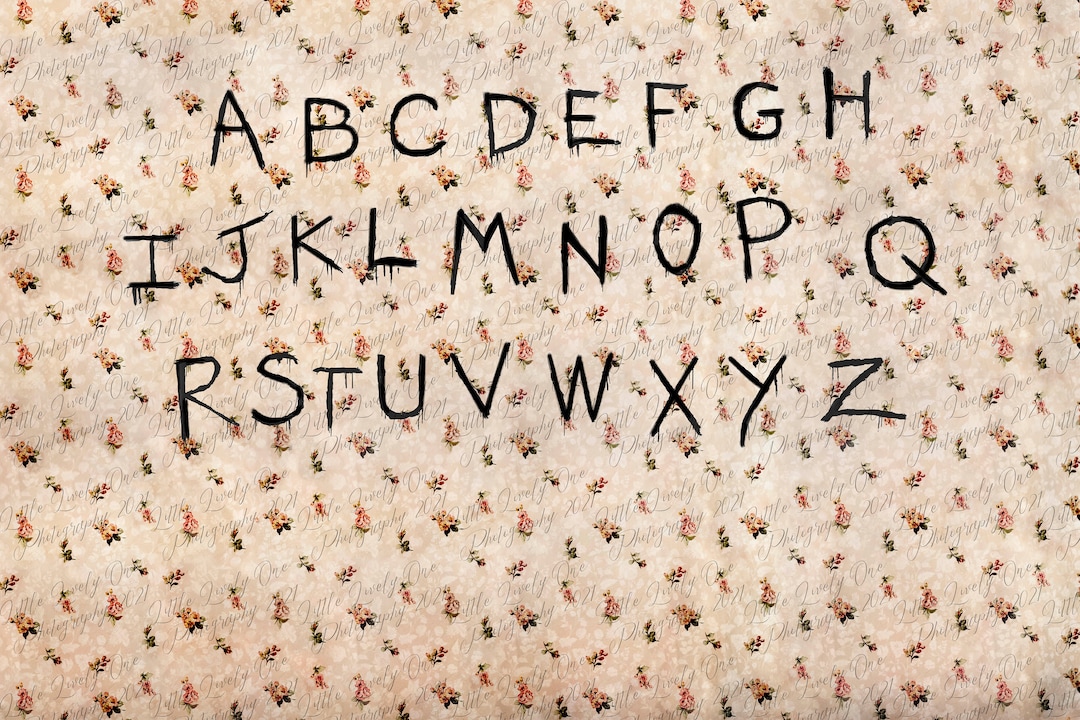 A B C D E F G H
I J K L M N O P Q
R S T U V W X Y Z
Little Lively One Photography 2021